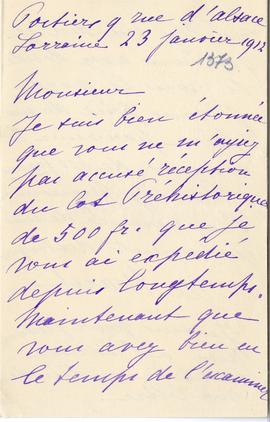 Poitiers 9 rue d'alsace
Lorraine 23 janvier 1912
1373
Monsieur
Je suis bien étonnée
que vous ne m'ayiez
pas accusé réception
du lot Préhistorique
de 500 fr. que je
vous ai expedié
depuis longtemps.
Maintenant que
vous avez bien eu
le temps de l'examiner